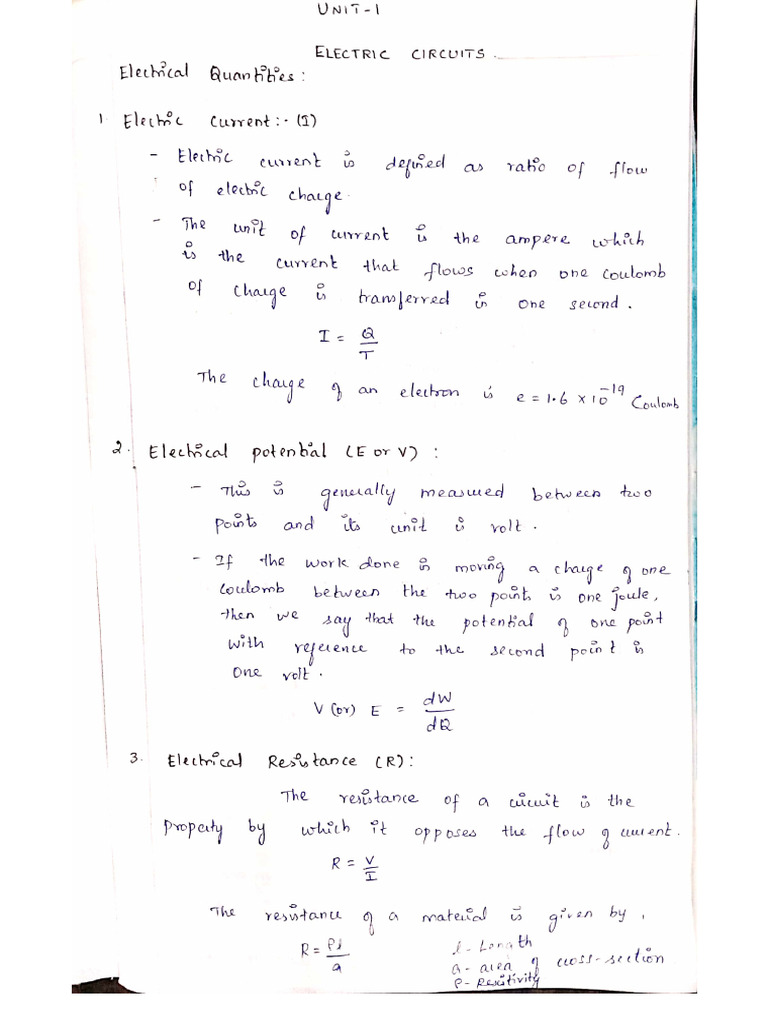 UNIT-1
ELECTRIC CIRCUITS.
Electrical Quantities:
1. Electric Current:- (I)
- Electric current is defined as ratio of flow
of electric charge.
- The unit of current is the ampere which
is the current that flows when one Coulomb
of charge is transferred in one second.
I = Q/T
The charge of an electron is e = 1.6 × 10⁻¹⁹ Coulomb
2. Electrical potential (E or V) :
- This is generally measured between two
points and its unit is volt.
- If the work done in moving a charge of one
Coulomb between the two points is one joule,
then we say that the potential of one point
with reference to the second point is
one volt.
V (or) E = dW/dQ
3. Electrical Resistance (R):
The resistance of a circuit is the
property by which it opposes the flow of current.
R = V/I
The resistance of a material is given by,
R = ρl/a
l - Length
a - area of cross-section
ρ - Resitivity